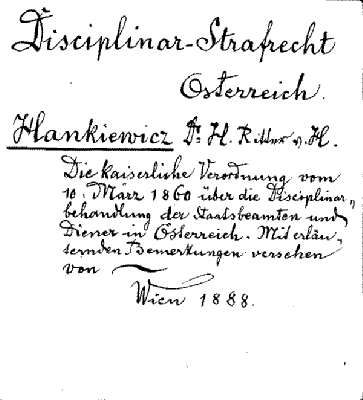 Disciplinar-Strafrecht
Österreich.
Hankiewicz Dr. H. Ritter v. H.
Die kaiserliche Verordnung vom
10. März 1860 über die Disciplinar-
behandlung der Staatsbeamten und
Diener in Österreich. Mit erläu-
ternden Bemerkungen versehen
von
Wien 1888.